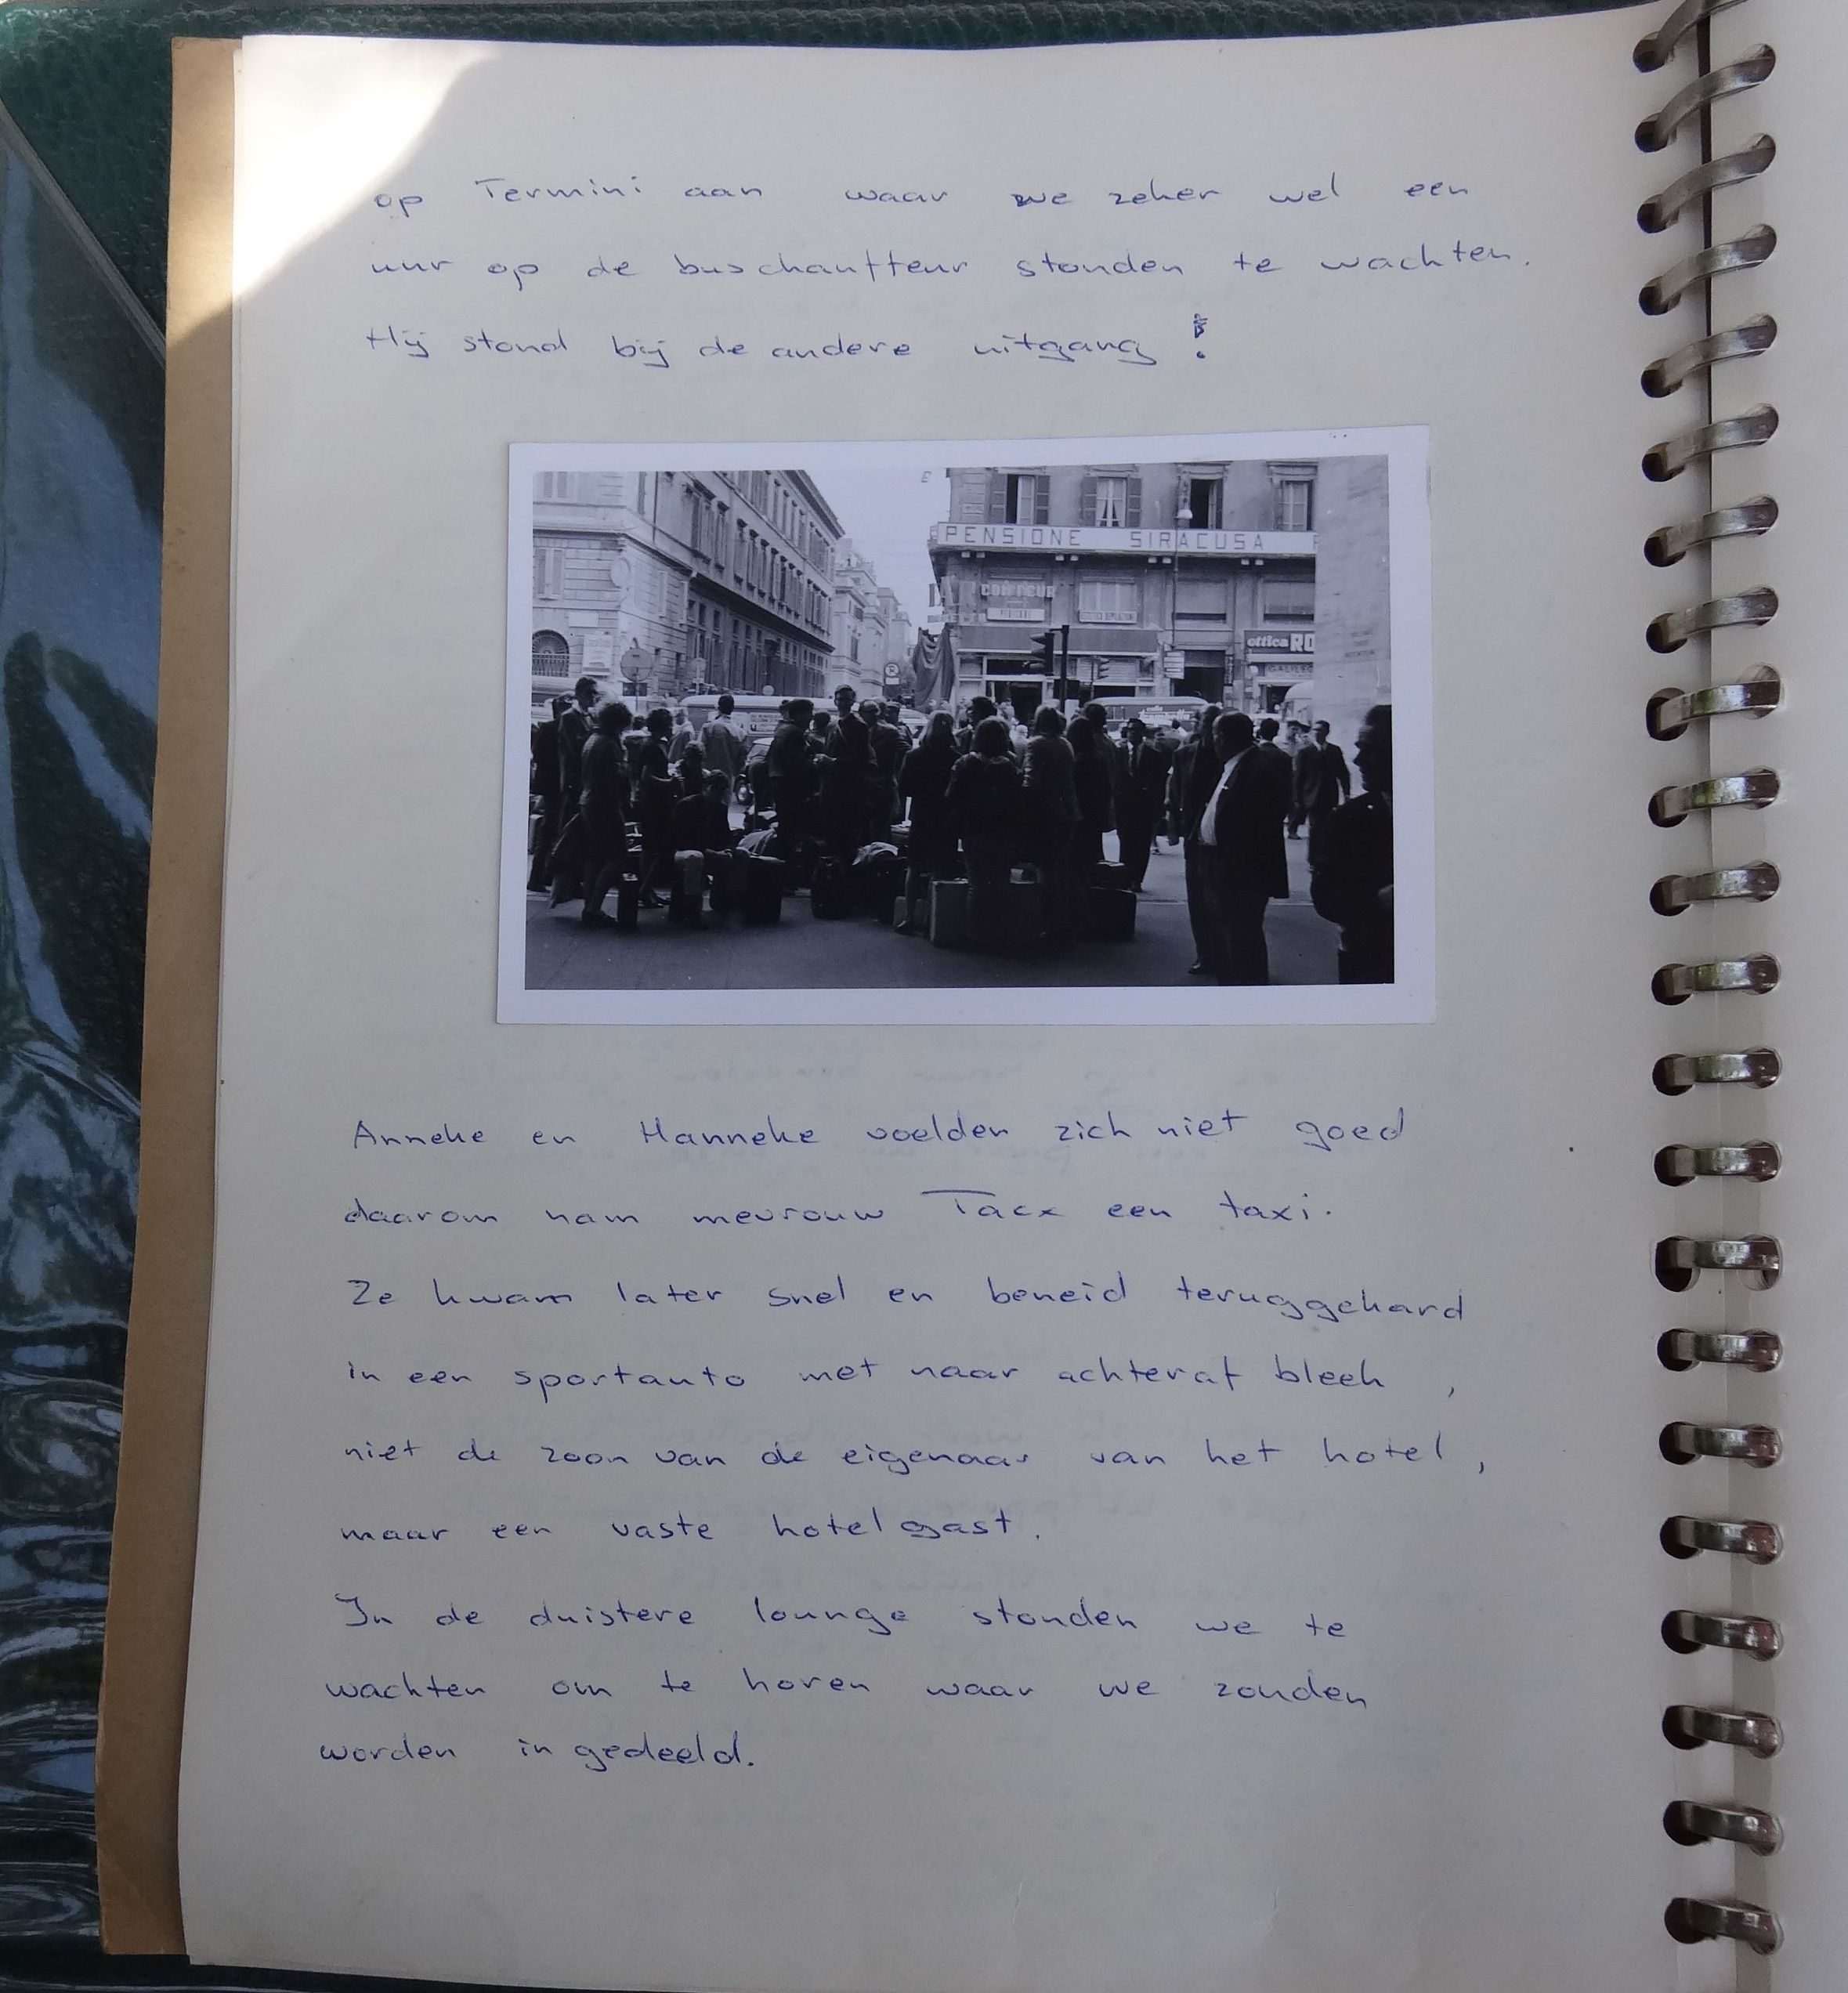 op Termini aan waar we zeker wel een
uur op de buschauffeur stonden te wachten.
Hij stond bij de andere uitgang!
PENSIONE SIRACUSA
COIFFEUR
ottica RO
Anneke en Hanneke voelden zich niet goed
daarom nam mevrouw Tacx een taxi.
Ze kwam later snel en beneid teruggekard
in een sportauto met naar achteraf bleek,
niet de zoon van de eigenaar van het hotel,
maar een vaste hotelgast.
In de duistere lounge stonden we te
wachten om te horen waar we zouden
worden in gedeeld.